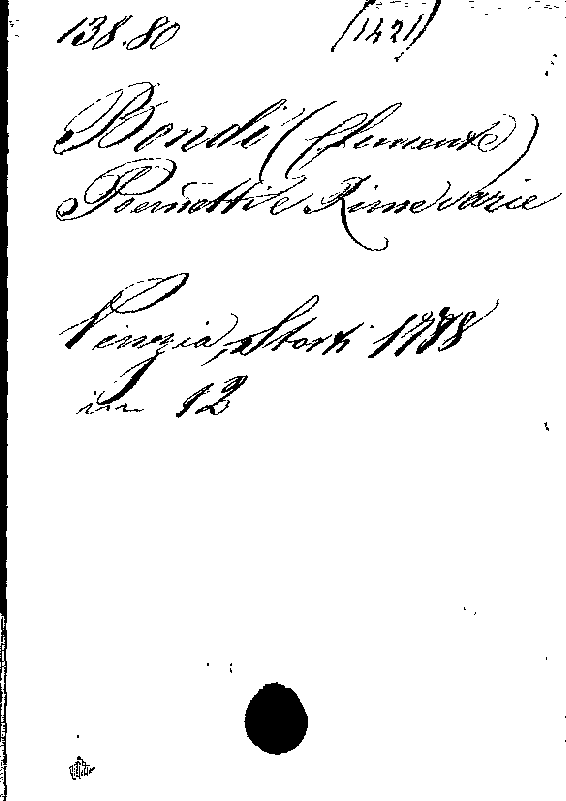 138.80 (1421)
Bondi (Clemente)
Poemetti e Rime varie
Venezia, Storti 1788
in 12